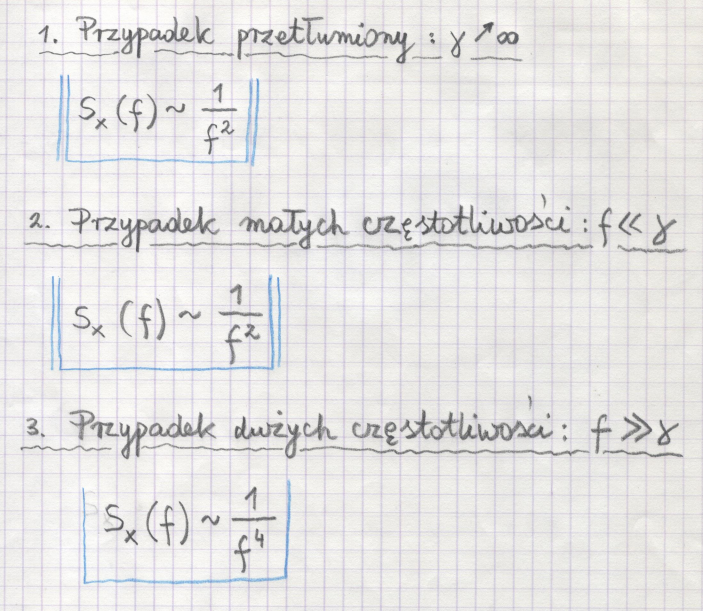 1. Przypadek przetłumiony : γ ↗ ∞
Sₓ (f) ~ 1/f²
2. Przypadek małych częstotliwości : f ≪ γ
Sₓ (f) ~ 1/f²
3. Przypadek dużych częstotliwości : f ≫ γ
Sₓ (f) ~ 1/f⁴